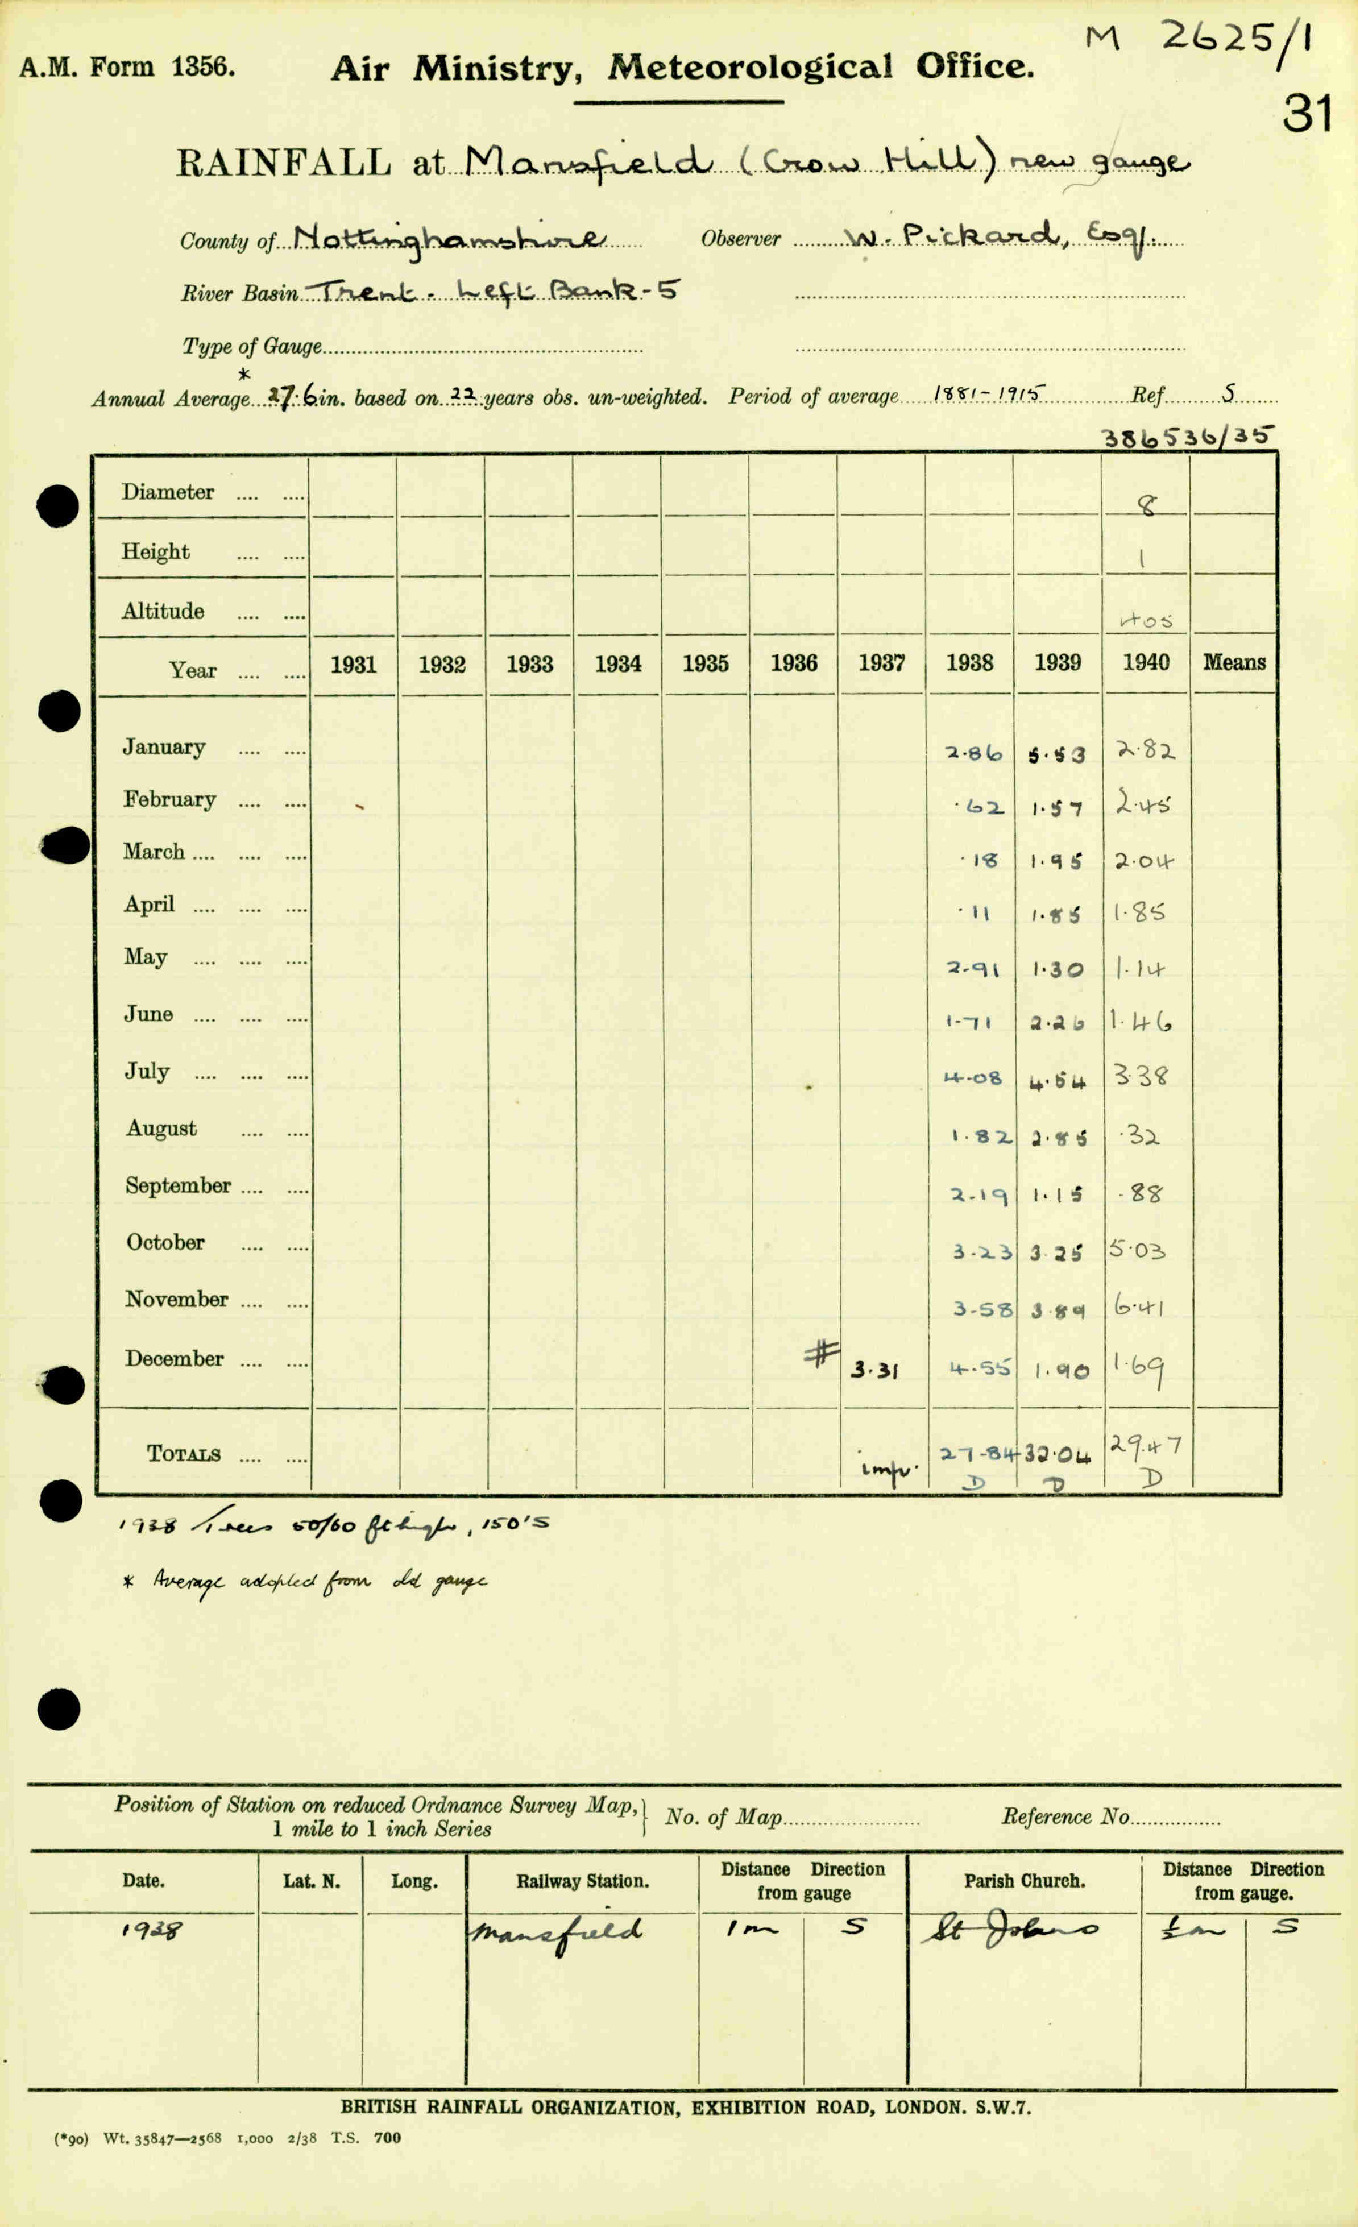 M 2625/1
A.M. Form 1356. Air Ministry, Meteorological Office.
31
RAINFALL at Mansfield (Crow Hill) new gauge
County of Nottinghamshire Observer W. Pickard, Esq.
River Basin Trent. Left Bank-5
Type of Gauge
*
Annual Average 27.6 in. based on 22 years obs. un-weighted. Period of average 1881-1915 Ref. S
386536/35
Diameter .... .... 8
Height .... .... 1
Altitude .... .... 405
Year .... .... 1931 1932 1933 1934 1935 1936 1937 1938 1939 1940 Means
January .... .... 2.86 5.53 2.82
February .... .... .62 1.57 2.45
March .... .... .... .18 1.95 2.04
April .... .... .... .11 1.85 1.85
May .... .... .... 2.91 1.30 1.14
June .... .... .... 1.71 2.26 1.46
July .... .... .... 4.08 4.54 3.38
August .... .... 1.82 2.85 .32
September .... .... 2.19 1.15 .88
October .... .... 3.23 3.25 5.03
November .... .... 3.58 3.89 6.41
December .... .... # 3.31 4.55 1.90 1.69
TOTALS .... .... imp. 27.84 32.04 29.47
D D D
1938 Trees 50/60 ft high, 150'S
* Average adopted from old gauge
Position of Station on reduced Ordnance Survey Map, 1 mile to 1 inch Series } No. of Map Reference No.
Date. Lat. N. Long. Railway Station. Distance Direction from gauge Parish Church. Distance Direction from gauge.
1938 Mansfield 1 m S St Johns ½ m S
BRITISH RAINFALL ORGANIZATION, EXHIBITION ROAD, LONDON. S.W.7.
(*90) Wt. 35847—2568 1,000 2/38 T.S. 700